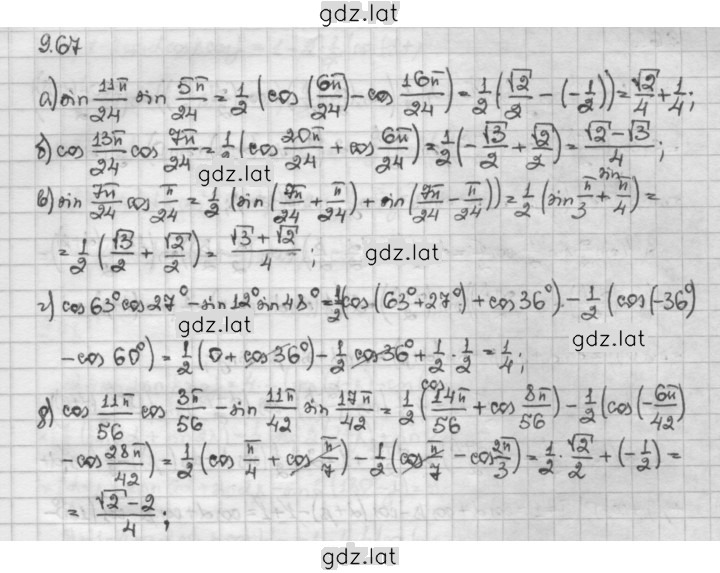 gdz.lat
9.67
а) sin 11π/24 sin 5π/24 = 1/2 (cos (6π/24) - cos 16π/24) = 1/2 (√2/2 - (-1/2)) = √2/4 + 1/4;
б) cos 13π/24 cos 7π/24 = 1/2 (cos 20π/24 + cos 6π/24) = 1/2 (-√3/2 + √2/2) = (√2 - √3)/4;
gdz.lat
в) sin 7π/24 cos π/24 = 1/2 (sin (7π/24 + π/24) + sin (7π/24 - π/24)) = 1/2 (sin π/3 + sin π/4) =
= 1/2 (√3/2 + √2/2) = (√3 + √2)/4;
gdz.lat
г) cos 63° cos 27° - sin 12° sin 48° = 1/2 (cos (63° + 27°) + cos 36°) - 1/2 (cos (-36°)
gdz.lat
gdz.lat
- cos 60°) = 1/2 (0 + cos 36°) - 1/2 cos 36° + 1/2 · 1/2 = 1/4;
д) cos 11π/56 cos 3π/56 - sin 11π/42 sin 17π/42 = 1/2 (cos 14π/56 + cos 8π/56) - 1/2 (cos (-6π/42)
- cos 28π/42) = 1/2 (cos π/4 + cos π/7) - 1/2 (cos π/7 - cos 2π/3) = 1/2 · √2/2 + (-1/2) =
= (√2 - 2)/4;
gdz.lat